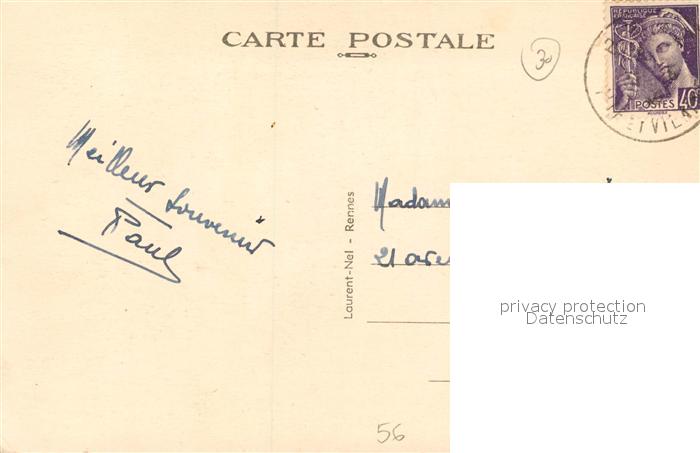 CARTE POSTALE
30
RÉPUBLIQUE
FRANÇAISE
POSTES 40
ET VILA
Meilleur souvenir
Paul
Laurent-Nel - Rennes
Madam
21 ave
privacy protection
Datenschutz
56